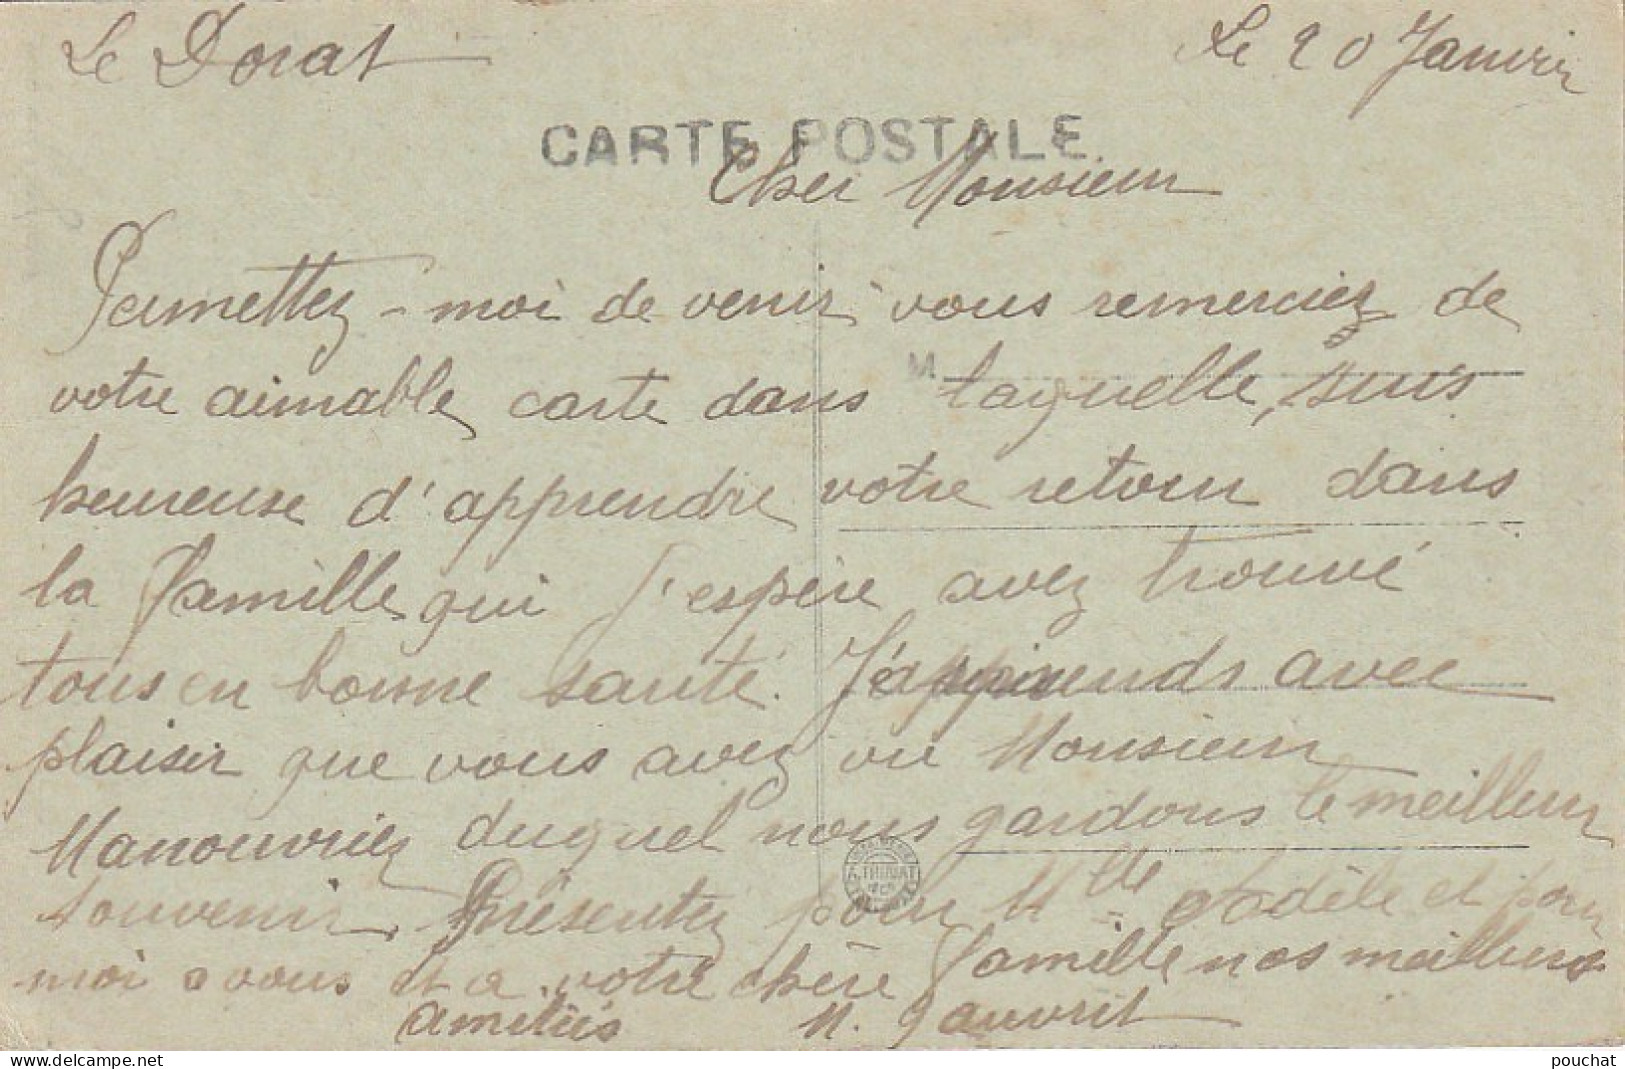 Le Dorat Le 20 Janvier
CARTE POSTALE
Cher Monsieur
Permettez-moi de venir vous remerciez de
votre aimable carte dans laquelle, suis
heureuse d'apprendre votre retour dans
la famille qui j'espère avez trouvé
tous en bonne santé. J'apprends avec
plaisir que vous avez vu Monsieur
Manouvriez duquel nous gardons le meilleur
souvenir. Présentez pour Mlle Adèle et pour
moi a vous et a votre chère famille nos meilleures
amitiés M.
delcampe.net
pouchat